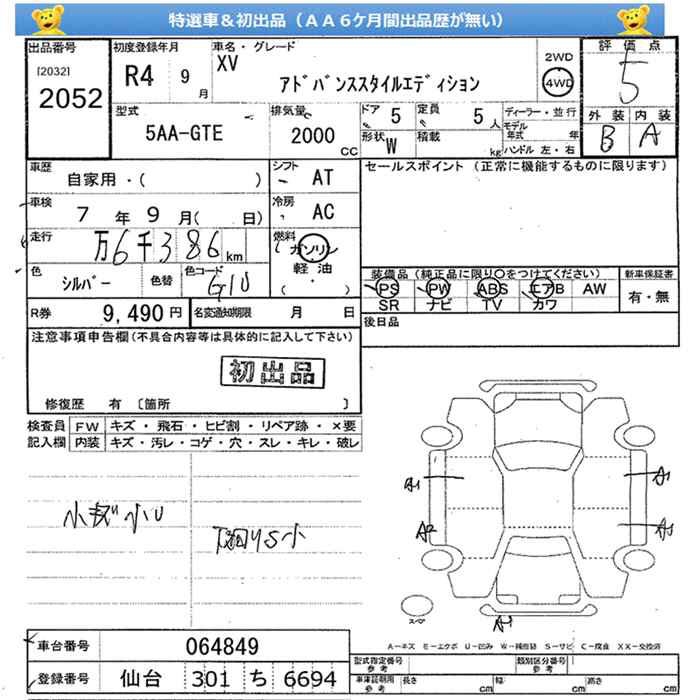 特選車＆初出品（ＡＡ６ケ月間出品歴が無い）
出品番号 初度登録年月 車名・グレード 評価点
[2032] 2052 R4 9月 XV アドバンススタイルエディション 2WD 4WD 5
外装 内装
B A
型式 排気量 ドア 5 定員 5人 ディーラー・並行
5AA-GTE 2000 CC 形状 W 積載 kg モデル年式 年
ハンドル 左・右
車歴 自家用・( ) シフト AT セールスポイント（正常に機能するものに限ります）
車検 7年9月( 日) 冷房 AC
走行 万6千386km 燃料 ガソリン 軽油 ( ・ )
色 シルバー 色替 色コード G1U
装備品（純正品に限り○をつけてください） 新車保証書
PS PW ABS エアB AW 有・無
SR ナビ TV カワ
R券 9,490円 名変通知期限 月 日 後日品
注意事項申告欄(不具合内容等は具体的に記入して下さい)
初出品
修復歴 有 〔箇所 〕
検査員 FW キズ・飛石・ヒビ割・リペア跡・×要
記入欄 内装 キズ・汚レ・コゲ・穴・スレ・キレ・破レ
小キズ小U
下廻りS小
A1 A1
A2 A1
スペア A1
A－キズ E－エクボ U－凹み W－補修跡 S－サビ C－腐食 XX－交換済
車台番号 064849
登録番号 仙台 301 ち 6694
型式指定番号 参考 類別区分番号 参考
車庫証明用 参考 長さ cm 幅 cm 高さ cm